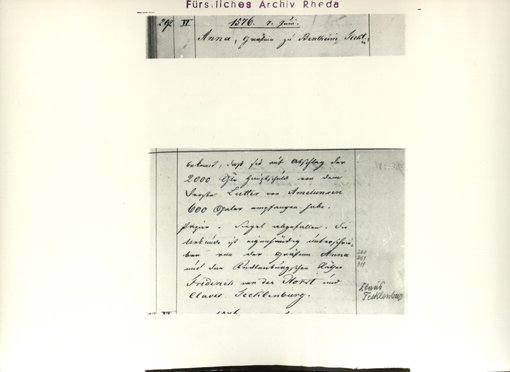 Fürstliches Archiv Rheda
292 VI 1576. 7. Juni.
Anna, Gräfin zu Bentheim, Teckl.
bekennt, daß sie auf Abschlag der
2000 Hauptschuld von dem
Lutter von Amelunxen
600 Thaler empfangen habe.
Papier. Siegel abgefallen. Die
Urkunde ist eigenhändig unterschrie-
ben von der Gräfin Anna
und den
Friderich von der Horst und
Clavis Tecklenburg.
Klavis
Tecklenburg